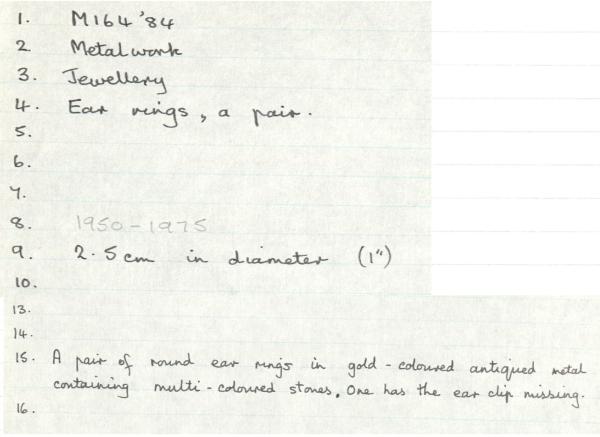 1. M164 '84
2 Metalwork
3. Jewellery
4. Ear rings, a pair.
5.
6.
7.
8. 1950-1975
9. 2.5cm in diameter (1")
10.
13.
14.
15. A pair of round ear rings in gold-coloured antiqued metal
containing multi-coloured stones. One has the ear clip missing.
16.